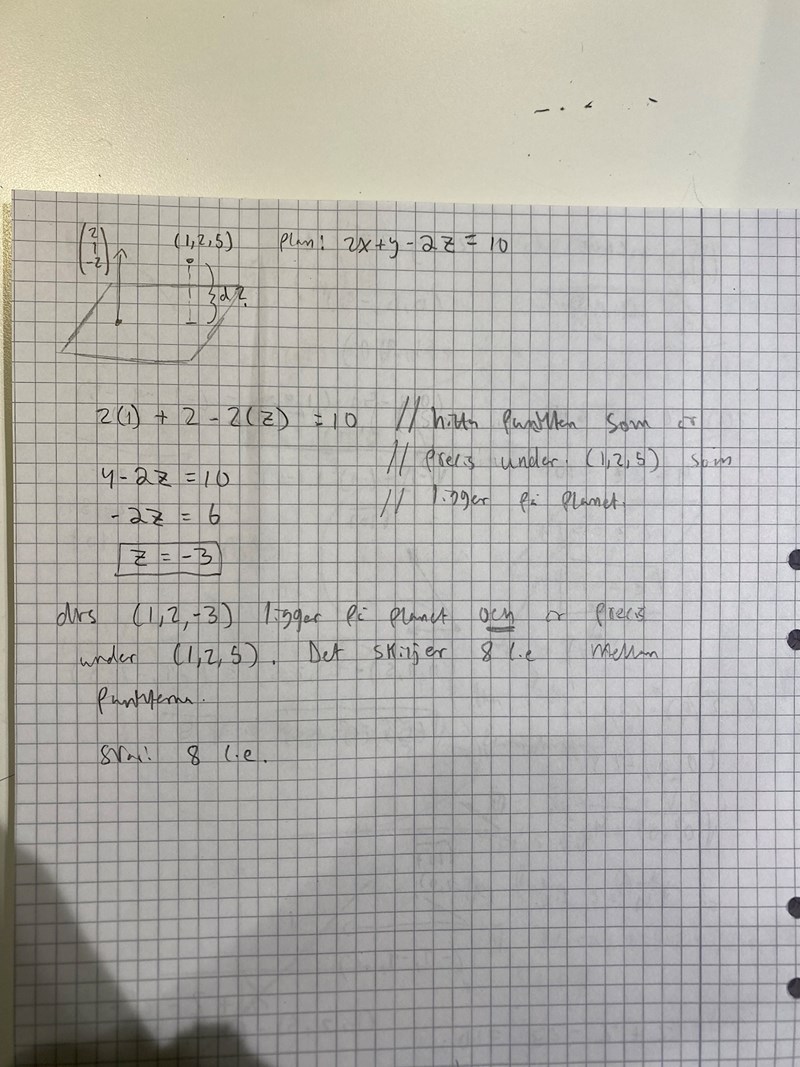 (2
1
-2)
(1,2,5) plan: 2x+y-2z=10
d?
2(1) + 2 - 2(z) = 10 // hitta punkten som är
4-2z = 10 // precis under (1,2,5) som
-2z = 6 // ligger på planet.
z = -3
dvs (1,2,-3) ligger på planet och är precis
under (1,2,5). Det skiljer 8 l.e mellan
punkterna.
svar: 8 l.e.